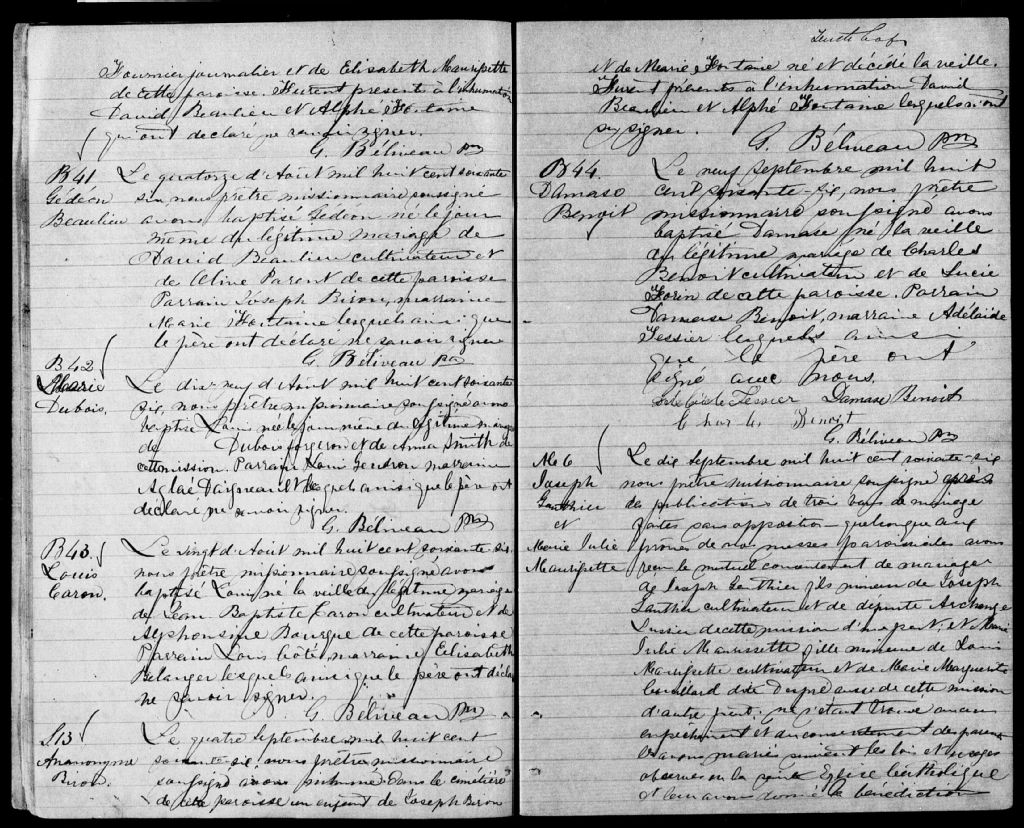 Fournier journalier et de Elisabeth Maurissette
de cette paroisse. Furent présents à l'inhumation
David Beaulieu et Alphé Fontaine
qui ont declaré ne savoir signer.
G. Béliveau Ptre
B41
Gédéon
Beaulieu
Le quatorze d'Aout mil huit cent soixante
six nous prêtre missionnaire soussigné
avons baptisé Gedeon né le jour
même du légitime mariage de
David Beaulieu cultivateur et
de Céline Parent de cette paroisse
Parrain Joseph Biron, marraine
Marie Fontaine lesquels ainsi que
le père ont declaré ne savoir signer
G. Béliveau Ptre
B42
Marie
Dubois.
Le dix neuf d'Aout mil huit cent soixante
six, nous prêtre missionnaire soussigné avons
baptisé né le jour même du légitime mariage
de Dubois forgeron et de Anna Smith de
cette mission. Parrain Louis Gendron marraine
Aglaé Daigneault lesquels ainsi que le père ont
declaré ne savoir signer.
G. Béliveau Ptre
B43
Louis
Caron.
Le vingt d'Aout mil huit cent soixante six
nous prêtre missionnaire soussigné avons
baptisé Louis né la veille du légitime mariage
de Jean Baptiste Caron cultivateur et de
Alphonsine Bourque de cette paroisse
Parrain Louis Coté, marraine Elisabeth
Belanger lesquels ainsi que le père ont déclaré
ne savoir signer.
G. Béliveau Ptre
S13
Ananonyme
Biron.
Le quatre Septembre mil huit cent
soixante six, nous prêtre missionnaire
soussigné avons inhumé dans le cimetière
de cette paroisse un enfant de Joseph Biron
et de Marie Fontaine né et décédé la veille.
Furent présents à l'inhumation David
Beaulieu et Alphé Fontaine lesquels ont
signer.
G. Béliveau Ptre
B44.
Damase
Benoit
Le neuf Septembre mil huit
cent soixante-six, nous prêtre
missionnaire soussigné avons
baptisé Damase né la veille
du légitime mariage de Charles
Benoit cultivateur et de Lucie
Forin de cette paroisse. Parrain
Damase Benoit, marraine Adélaide
Tessier lesquels ainsi
que le père ont
signé avec nous.
Tessier Damase Benoit
Charles Benoit
G. Béliveau Ptre
M6
Joseph
Gauthier
et
Marie Julie
Maurissette
Le dix Septembre mil huit cent soixante-six
nous prêtre missionnaire soussigné après
les publications de trois bans de mariage
faites sans opposition quelconque aux
prônes de nos messes paroissiales avons
reçu le mutuel consentement de mariage
de Joseph Gauthier fils mineur de Joseph
Gauthier cultivateur et de défunte Archange
Lussier de cette mission d'une part; et Marie
Julie Maurissette fille mineure de Louis
Maurissette cultivateur et de Marie Marguerite
aussi de cette mission
d'autre part; ne s'étant trouvé aucun
empêchement et du consentement des parents
les avons marié suivant les lois et usages
observés en la Sainte Eglise Catholique
et leur avons donné la bénédiction